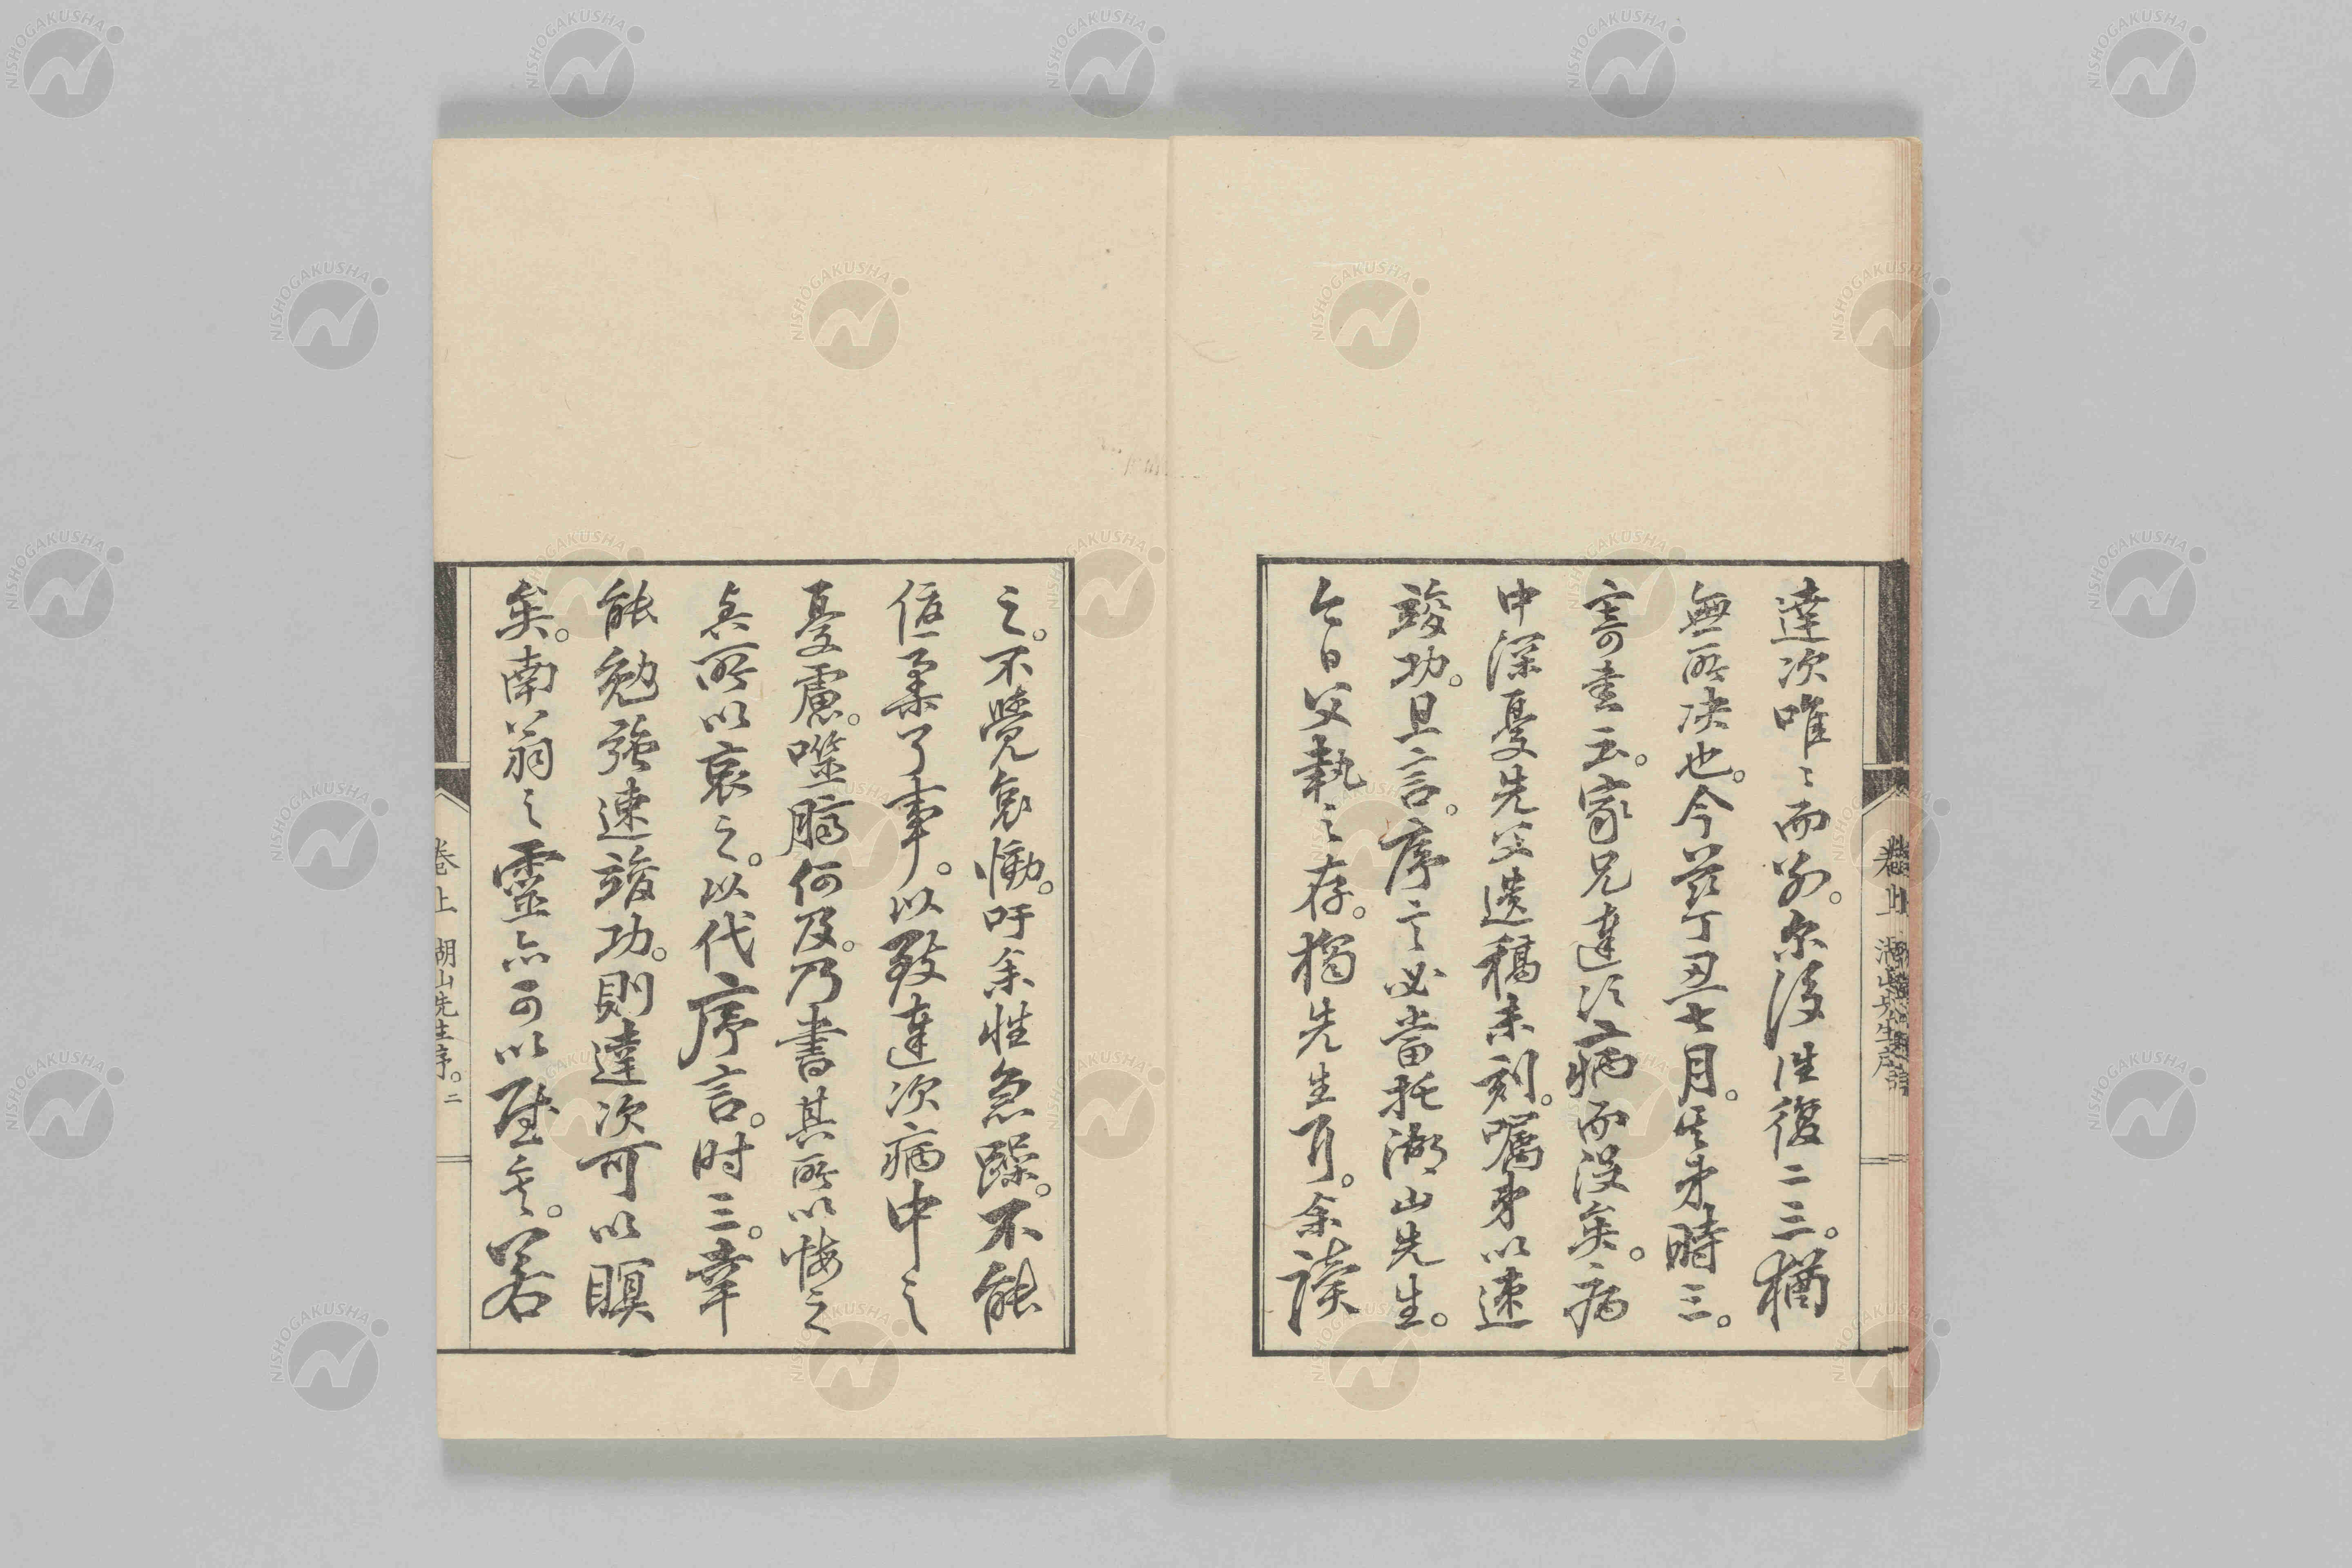 達次唯〻而別。尔後往復二三。猶
無所决也。今茲丁丑七月。其弟時三。
寄書云。家兄達次病而没矣。病
中深憂先父遺稿未刻。嘱弟以速
竣功。且言。序言必當托湖山先生。
今日父執之存。獨先生耳。余讀
之。不覺哀慟。吁余性急躁。不能
優柔了事。以致達次病中之
憂慮。噬臍何及。乃書其所以悔之
与所以哀之。以代序言。时三。幸
能勉強速竣功。則達次可以瞑
矣。南翁之靈亦可以慰矣。若
卷上 湖山先生序。二